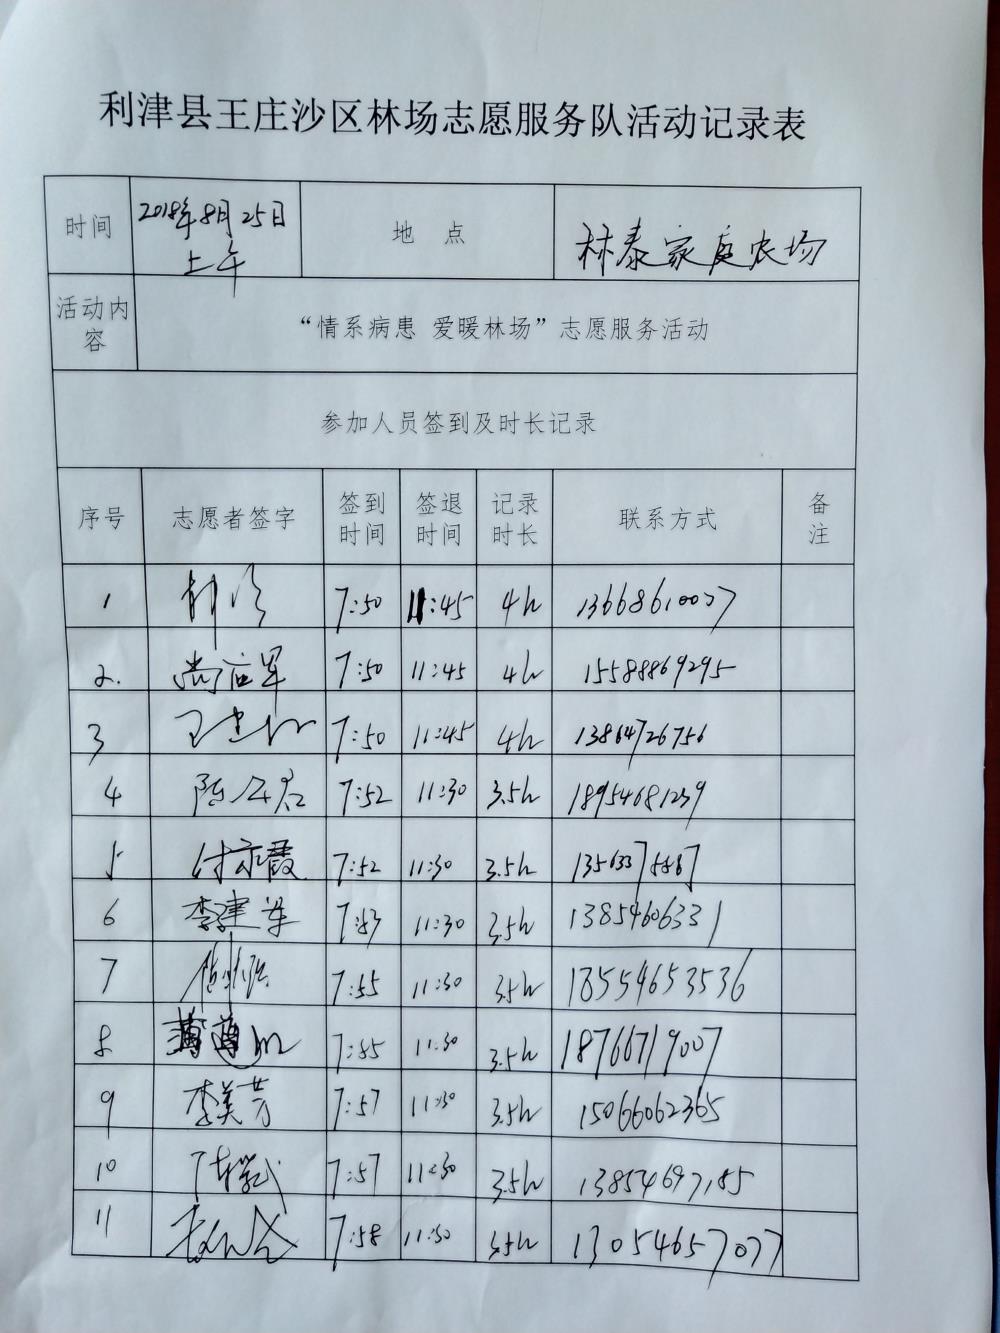 利津县王庄沙区林场志愿服务队活动记录表
时间 2018年8月25日 上午 地 点 林泰家庭农场
活动内容 “情系病患 爱暖林场”志愿服务活动
参加人员签到及时长记录
序号 志愿者签字 签到时间 签退时间 记录时长 联系方式 备注
1 7:50 11:45 4h 13668610077
2. 尚店军 7:50 11:45 4h 15588869295
3 7:50 11:45 4h 13864726756
4 7:52 11:30 3.5h 18954681239
5 付永霞 7:52 11:30 3.5h
6 李建军 7:53 11:30 3.5h 13854606331
7 7:55 11:30 3.5h 18554653536
8 7:55 11:30 3.5h 18766719007
9 李美芳 7:57 11:30 3.5h 15066062365
10 7:57 11:30 3.5h 13854697185
11 7:58 11:30 3.5h 13054657077